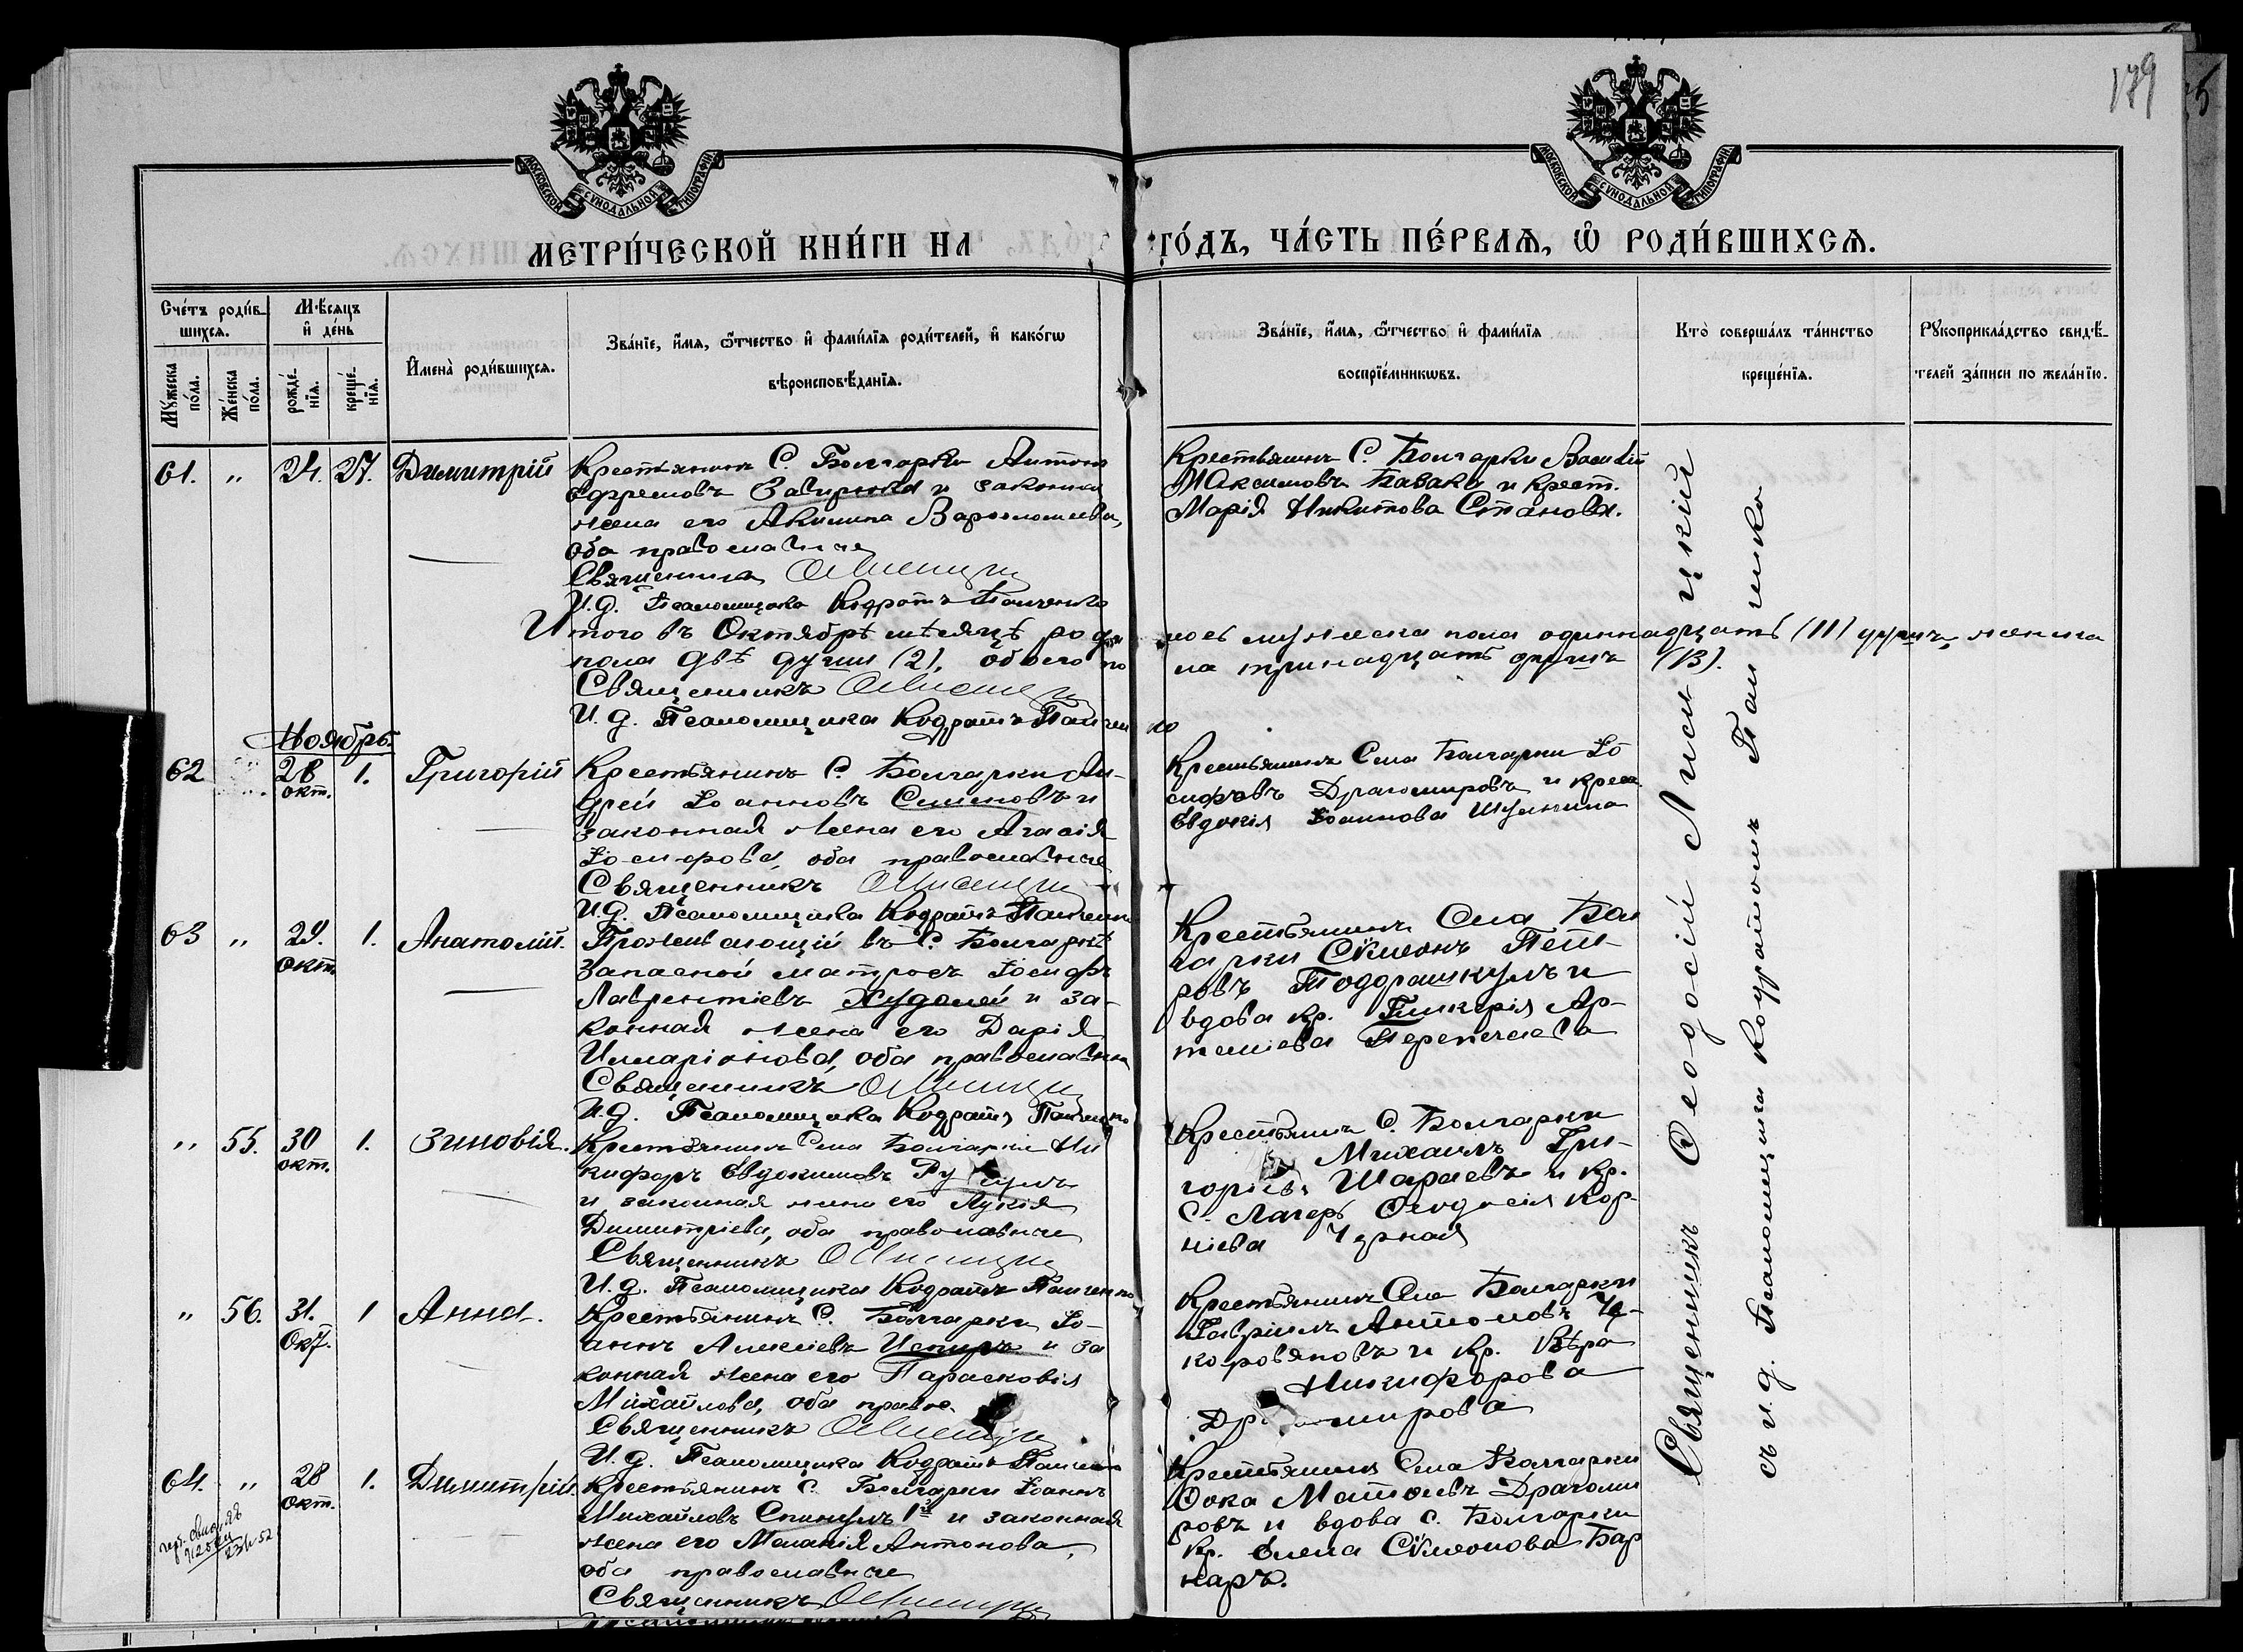 179
МОСКОВСКОЙ СѴНОДАЛЬНОЙ ТИПОГРАФІИ
МОСКОВСКОЙ СѴНОДАЛЬНОЙ ТИПОГРАФІИ
МЕТРИ́ЧЕСКОЙ КНИ́ГИ НА
ГО́ДЪ, ЧА́СТЬ ПЕ́РВАѦ, Ѡ҆ РОДИ́ВШИХСѦ.
Сче́тъ роди́в-
шихсѧ.
Мꙋ́жеска по́ла.
Же́нска по́ла.
Мѣ́сѧцъ
и҆ де́нь
рожде́-
нїѧ.
креще́-
нїѧ.
И҆мена̀ роди́вшихсѧ.
Зва́нїе, и҆́мѧ, ѻ҆́тчество и҆ фами́лїѧ роди́телей, и҆ како́гѡ
вѣроисповѣ́данїѧ.
Зва́нїе, и҆́мѧ, ѻ҆́тчество и҆ фами́лїѧ
воспрїе́мникѡвъ.
Кто̀ соверша́лъ та́инство
креще́нїѧ.
Рꙋкоприкла́дство свидѣ́-
телей за́писи по жела́нїю.
61. " 24. 27. Димитрій
Крестьянинъ С. Болгарки Антонъ
Ефремовъ Завирюха и законная
жена его Акилина Варѳоломеева,
оба православные
Священникъ
И.д. Псаломщика Кодратъ Панченко
Крестьянинъ С. Болгарки Василій
Максимовъ Казакъ и крест.
Марія Никитова Станова.
Итого въ Октябрѣ мѣсяцѣ родилось мужеска пола одиннадцать (11) душъ, женска
пола двѣ души (2), обоего пола тринадцать душъ (13).
Священникъ
И.д. Псаломщика Кодратъ Панченко
Ноябрь.
62 28 окт. 1. Григорій
Крестьянинъ С. Болгарки Ан-
дрей Іоанновъ Семеновъ и
законная жена его Агаѳія
Іосифова, оба православные
Священникъ
И.д. Псаломщика Кодратъ Панченко
Крестьянинъ Села Болгарки Іо
сифовъ Драгомировъ и крест.
Евдокія Іоаннова
63 " 29. окт. 1. Анатолій.
Проживающій въ С. Болгаркѣ
Запасной матросъ Іосифъ
Лаврентіевъ Худолей и за-
конная жена его Дарія
Илларіонова, оба православные
Священникъ
И.д. Псаломщика Кодратъ Панченко
Крестьянинъ Села Бол
гарки Сѵмеонъ Пет-
ровъ Тодорашкулъ и
вдова кр. Гликерія Ар-
теміева
" 55. 30 окт. 1. Зиновія.
Крестьянинъ Села Болгарки Ни
кифоръ Евдокимовъ
и законная жена его Лукія
Димитріева, оба православные
Священникъ
И.д. Псаломщика Кодратъ Панченко
Крестьянинъ С. Болгарки
Михаилъ Гри-
горіевъ Шараевъ и кр.
С. Лагерь Ѳеодосія Кор-
ніева Черная
" 56. 31. Окт. 1 Анна.
Крестьянинъ С. Болгарки Іо-
аннъ Алексіевъ и за
конная жена его Парасковія
Михайлова, оба правос.
Священникъ
И.д. Псаломщика Кодратъ Панченко
Крестьянинъ Села Болгарки
Гавріилъ Антоновъ Че-
коровяновъ и кр. Вѣра
Никифорова
Драгомирова
64. " 28 окт. 1. Димитрій.
Крестьянинъ С. Болгарки Іоаннъ
Михайловъ Спинулъ 1й и законная
жена его Меланія Антонова,
оба православные
Священникъ
Крестьянинъ Села Болгарки
Ѳока Матѳіевъ Драгоми
ровъ и вдова с. Болгарки
кр. Елена Сѵмеонова Бар
наръ.
Священникъ Ѳеодосій Лисицкій
съ и.д. Псаломщика Кодратомъ Панченко